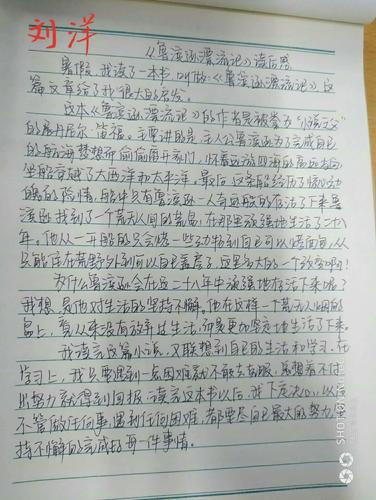 刘洋
《鲁滨逊漂流记》读后感
暑假,我读了一本书,叫做《鲁滨逊漂流记》,这
篇文章给了我很大的启发。
这本《鲁滨逊漂流记》的作者是被誉为“小说之父”
的丹尼尔·笛福。主要讲的是:主人公鲁滨逊为了完成自己
的航海梦想而偷偷离开家门,怀着远游四海的高远志向,
坐船穿越了大西洋和太平洋。最后,这条船经历了惊心动
魄的险情,船中只有鲁滨逊一人奇迹般的存活了下来,鲁
滨逊找到了一个荒无人烟的荒岛,在那里顽强地生活了二十八
年。他从一开始的只会烤一些动物到自己可以烤面包,从
只能住在荒野外到可以自己盖房子,这是多大的一个改变啊!
为什么鲁滨逊会在这二十八年中顽强地存活下来呢?
我想,是他对生活的坚持不懈。他在这样一个荒无人烟的
岛上,看从来没有放弃过生活,而是更加坚定地生活了下来。
我读完这篇小说,又联想到自己的生活和学习,在
学习上,我只要遇到一点困难就不敢去克服,总想着不付
出努力就得到回报,读完这本书以后,我下定决心,以后
不管做任何事,遇到任何困难,都要尽自己最大的努力,坚
持不懈的完成好每一件事情。
SHOT ON